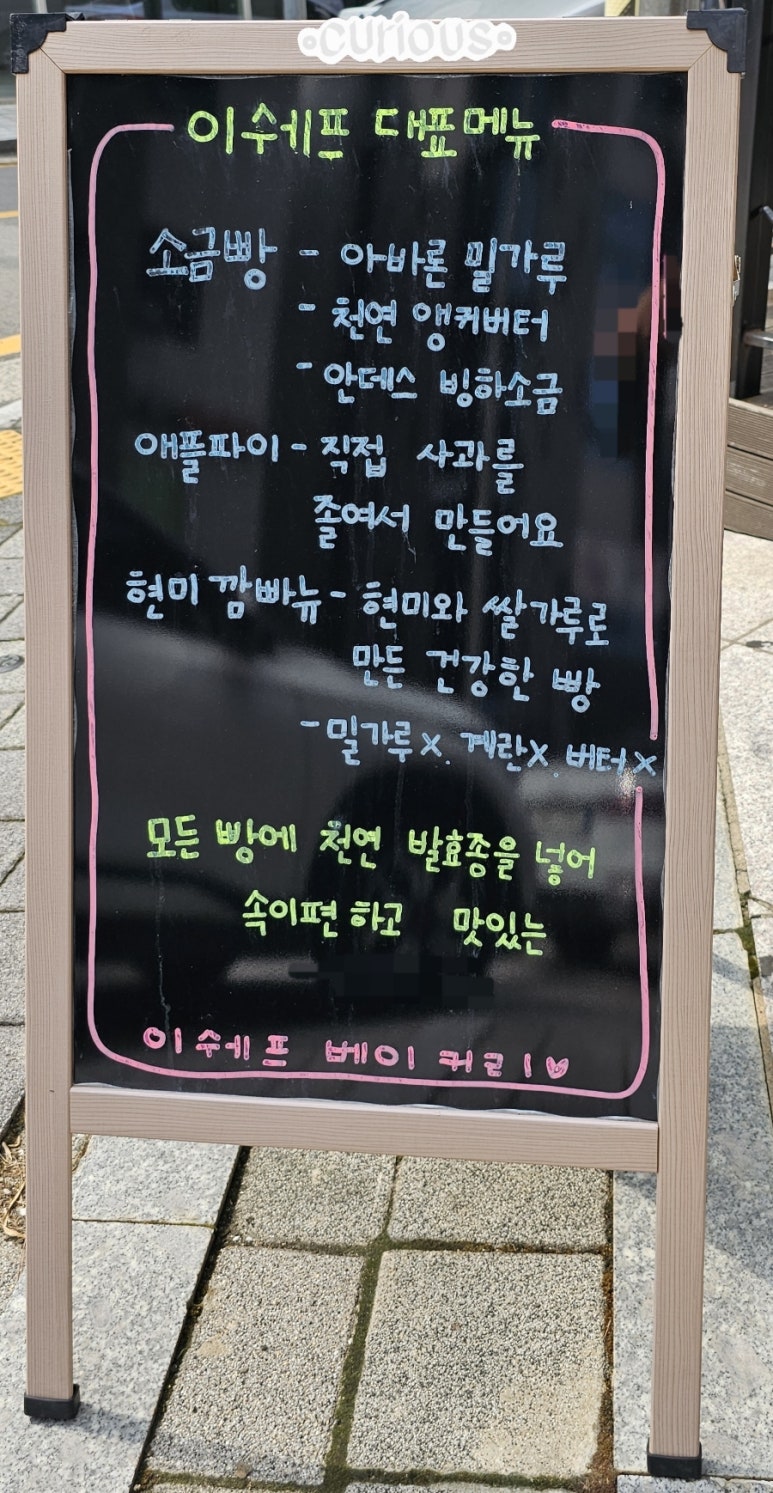 curious
이수에프 대표메뉴
소금빵 - 아바론 밀가루
- 천연 앵커버터
- 안데스 빙하소금
애플파이 - 직접 사과를
졸여서 만들어요
현미 깜빠뉴 - 현미와 쌀가루로
만든 건강한 빵
- 밀가루X. 계란X. 버터X
모든 빵에 천연 발효종을 넣어
속이편하고 맛있는
이쉐프 베이커리♡